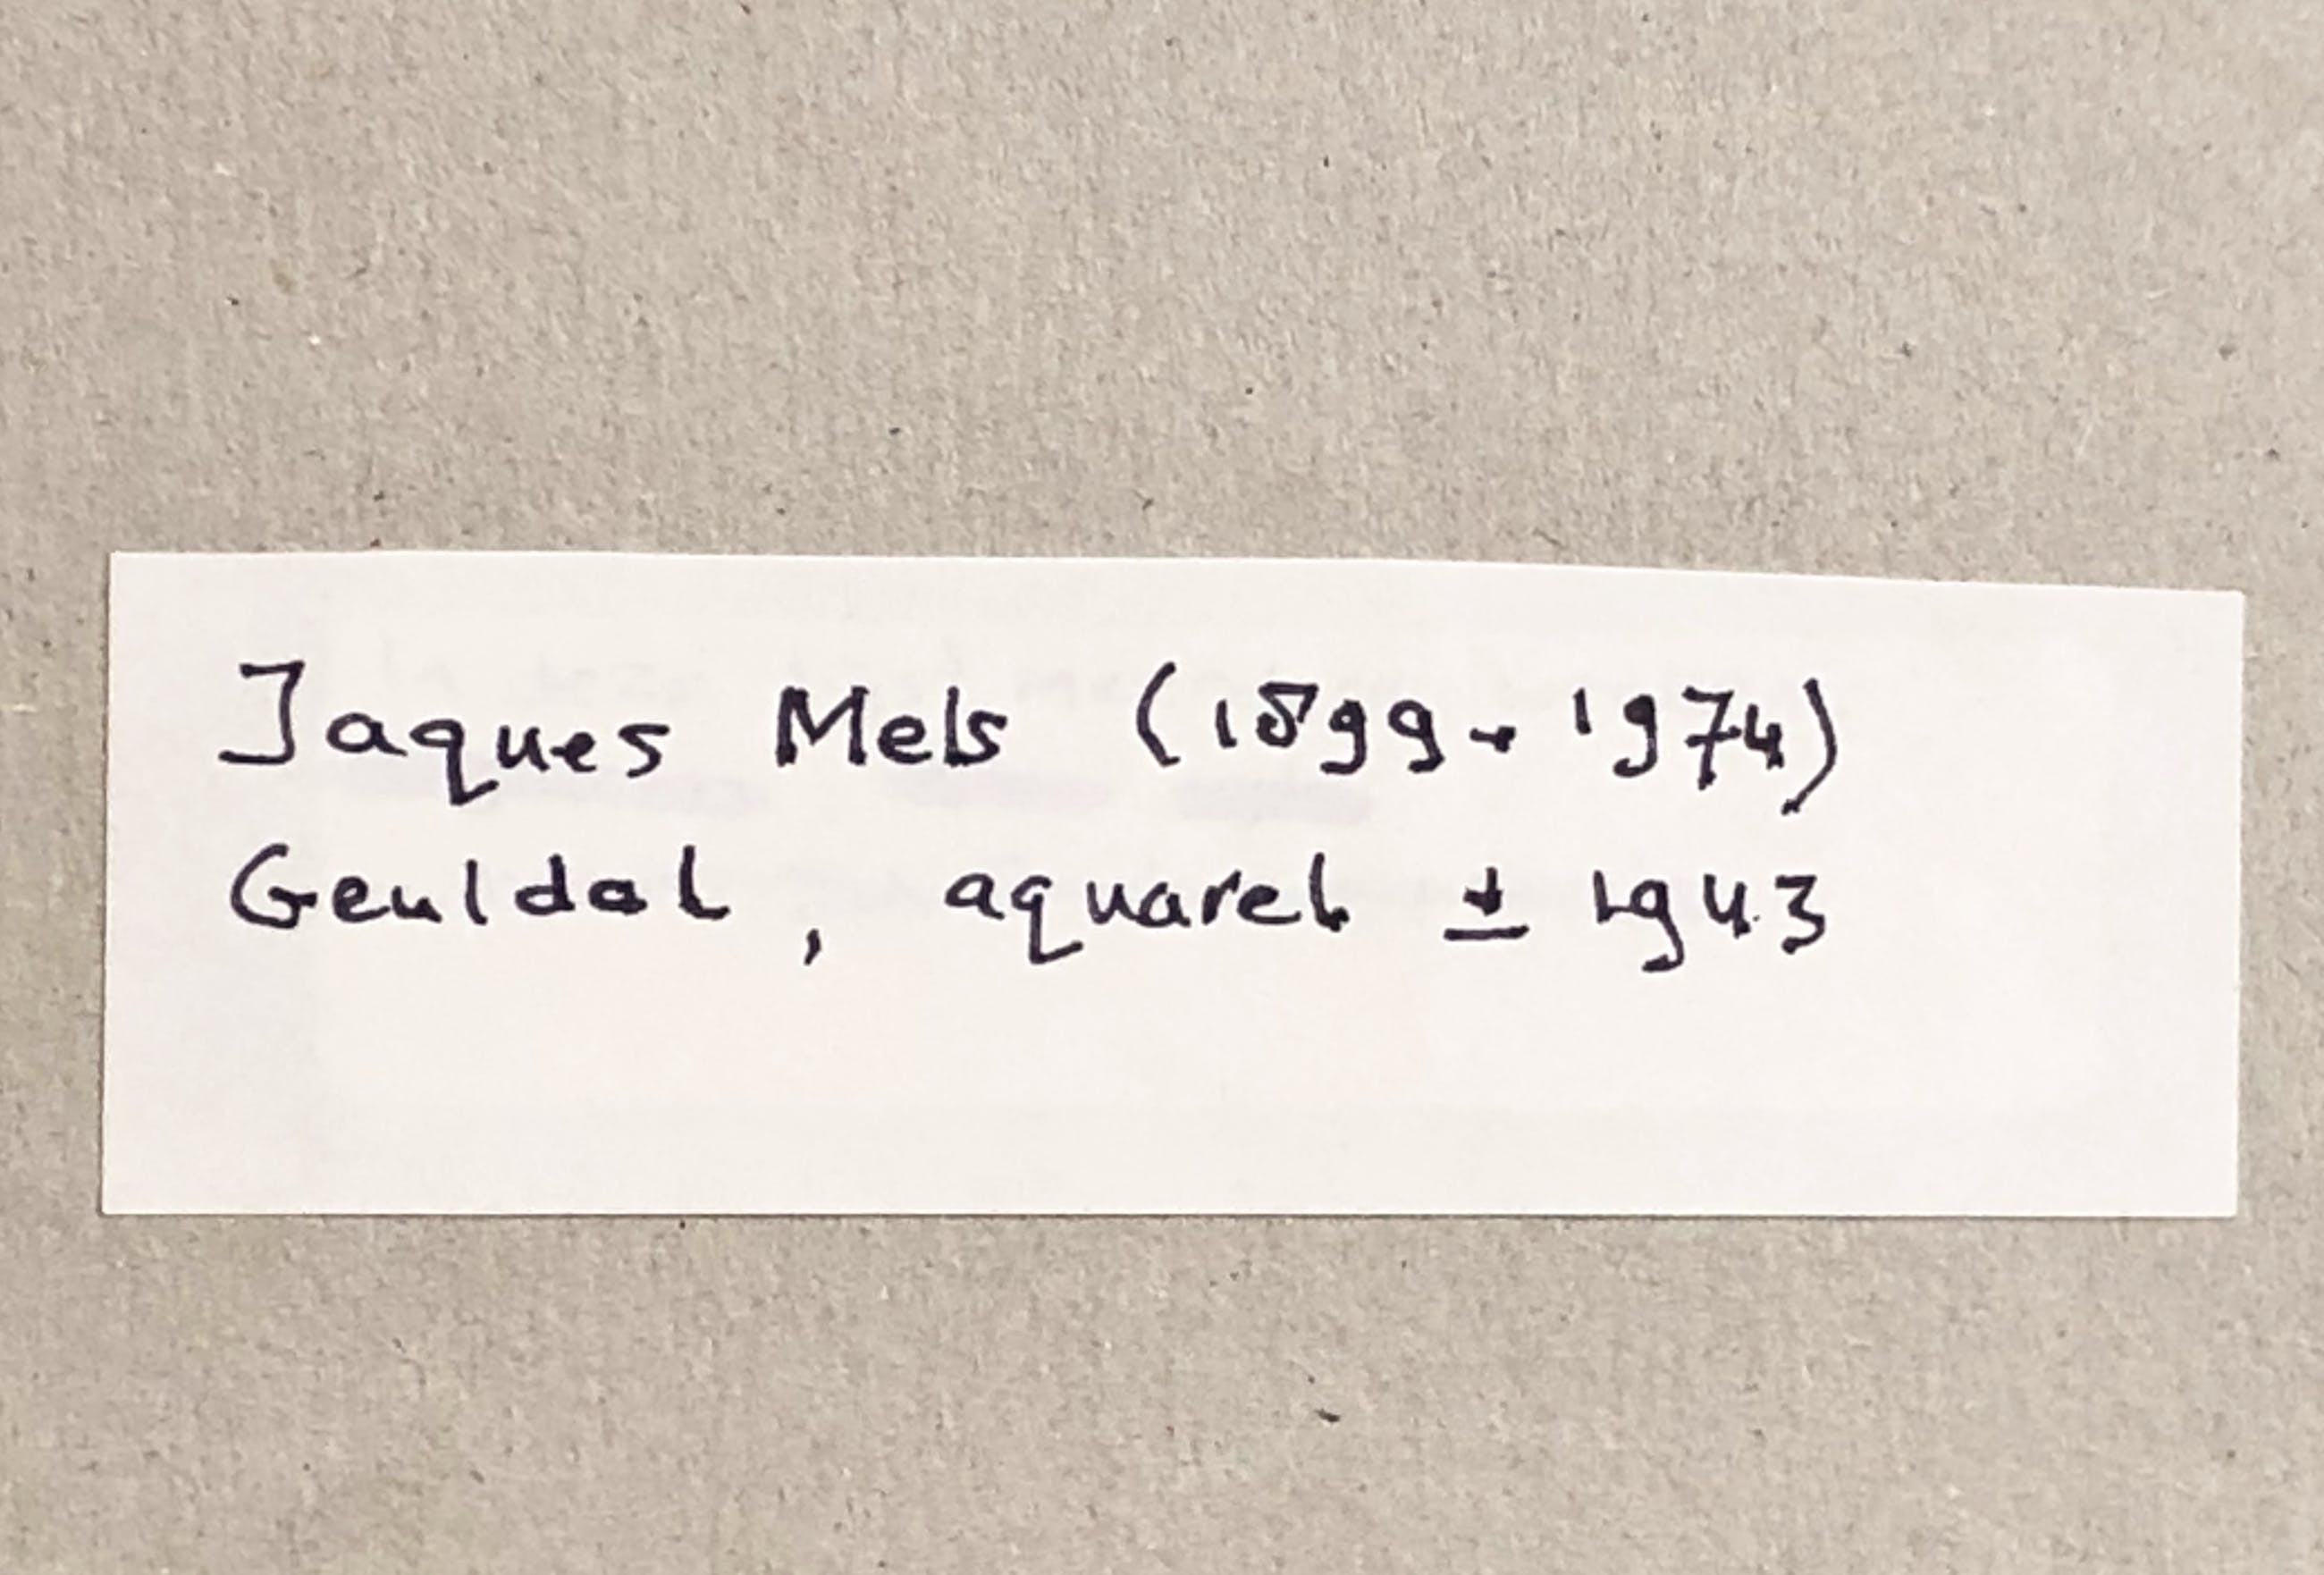 Jaques Mels (1899 - 1974)
Geuldal, aquarel ± 1943